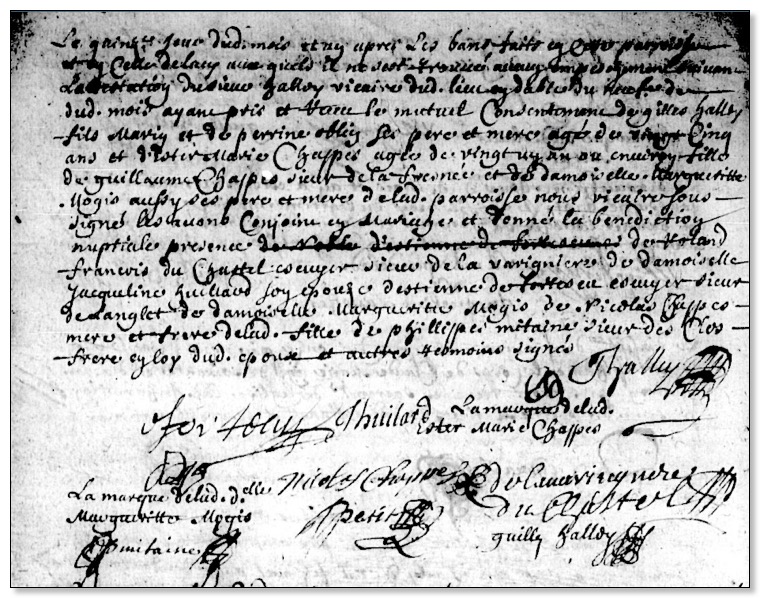 Le quinze jour dud. mois et an apres les bans faits en cette parroisse
et en celle de lacy aux quels il ne sest trouvé aucun empeschement suivant
Lattestation du sieur halley vicaire dud. lieu en date du
dud. mois ayant pris et receu le mutuel Consentement de gilles halley
fils Marin et de perrine oblin ses pere et mere agé de vingt cinq
ans et d'Ester Marie Chappes agee de vingt un an ou environ fille
de guillaume Chappes sieur de la fresnee et de damoiselle Margueritte
Mogis aussy ses pere et mere delad. parroisse nous vicaire sous
signé les avons Conjoint en Mariage et donné la benediction
nuptiale presence de Roland
francois du Chastel escuyer sieur de la varigniere de damoiselle
Jacqueline huillard son epouse destienne de fortescu escuyer sieur
de Langlet de damoiselle Margueritte Mogis de Nicolas Chappes
mere et frere delad. fille de phillippes mitaine sieur des Clos
frere en loy dud. epoux et autres temoins signés
Jhalley
La marque delad.
Ester Marie Chappes
de fortescu Jhuilard
Nicolas Chappes de lavarigniere
du Chastel
La marque delad. delle
Margueritte Mogis
petit
guilly halley
Pmitaine